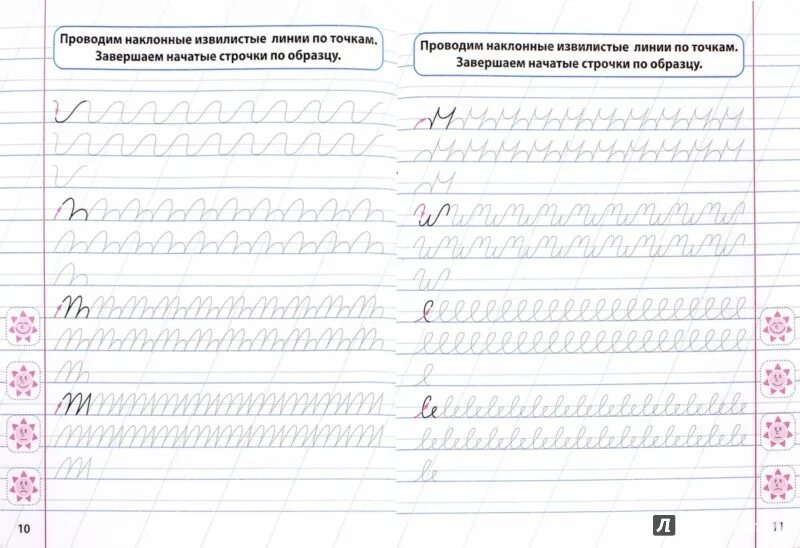 Проводим наклонные извилистые линии по точкам.
Завершаем начатые строчки по образцу.
10
Проводим наклонные извилистые линии по точкам.
Завершаем начатые строчки по образцу.
Л
11